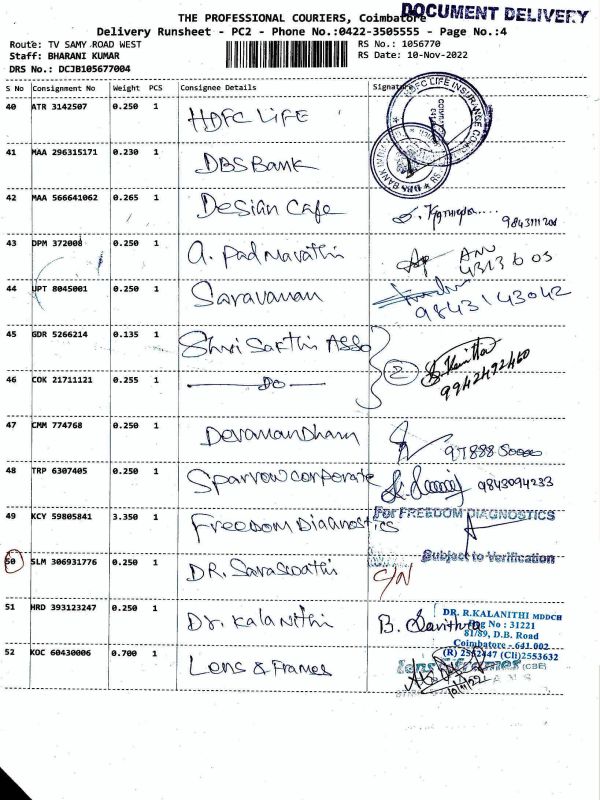 DOCUMENT DELIVERY
THE PROFESSIONAL COURIERS, Coimbatore
Delivery Runsheet - PC2 - Phone No.:0422-3505555 - Page No.:4
Route: TV SAMY ROAD WEST RS No.: 1056770
Staff: BHARANI KUMAR RS Date: 10-Nov-2022
DRS No.: DCJB105677004
S No Consignment No Weight PCS Consignee Details Signature
40 ATR 3142507 0.250 1 HDFC LIFE
41 MAA 296315171 0.230 1 DBS Bank
42 MAA 566641062 0.265 1 Design Cafe
43 DPM 372008 0.250 1 A. Padmavathi
44 UPT 8045001 0.250 1 Saravanan 9843143042
45 GDR 5266214 0.135 1 Shri Sakthi Asso
46 COK 21711121 0.255 1 Do 2 9942492460
47 CMM 774768 0.250 1 Devanandham
48 TRP 6307405 0.250 1 Sparrow corporate 9843094233
49 KCY 59805841 3.350 1 Freedom Diagnostics For FREEDOM DIAGNOSTICS
Subject to Verification
50 SLM 306931776 0.250 1 DR. Saraswathi C/N
51 HRD 393123247 0.250 1 Dr. Kalanithi B. Savithra
DR. R.KALANITHI MDDCH
Reg No : 31221
81/89, D.B. Road
Coimbatore - 641 002
(R) 2542447 (Cli)2553632
52 KOC 60430006 0.700 1 Lens & Frames